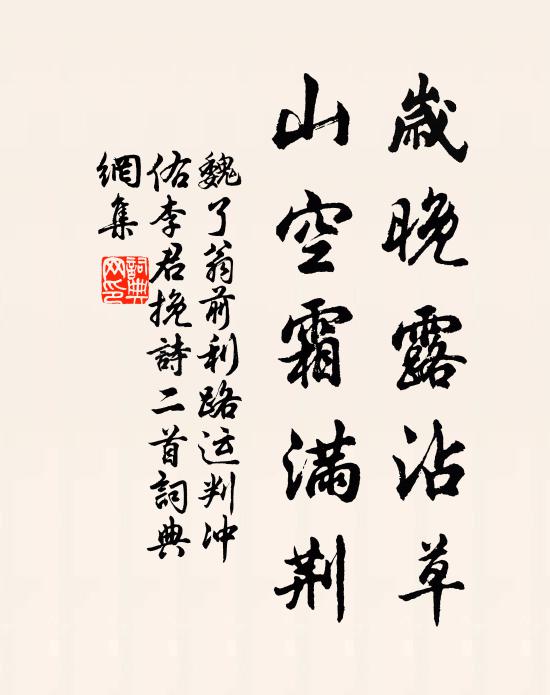 歲晚露沾草
山空霜滿荆
魏了翁前利路运判冲
佑李君挽詩二首詞典
網集
詞典網印